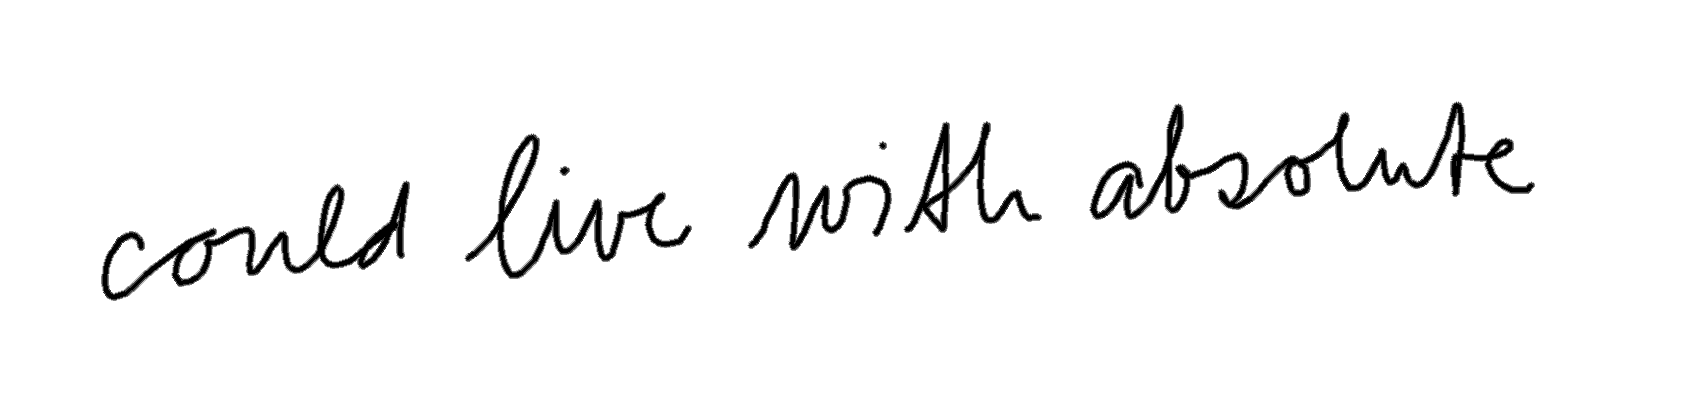 could live with absolute